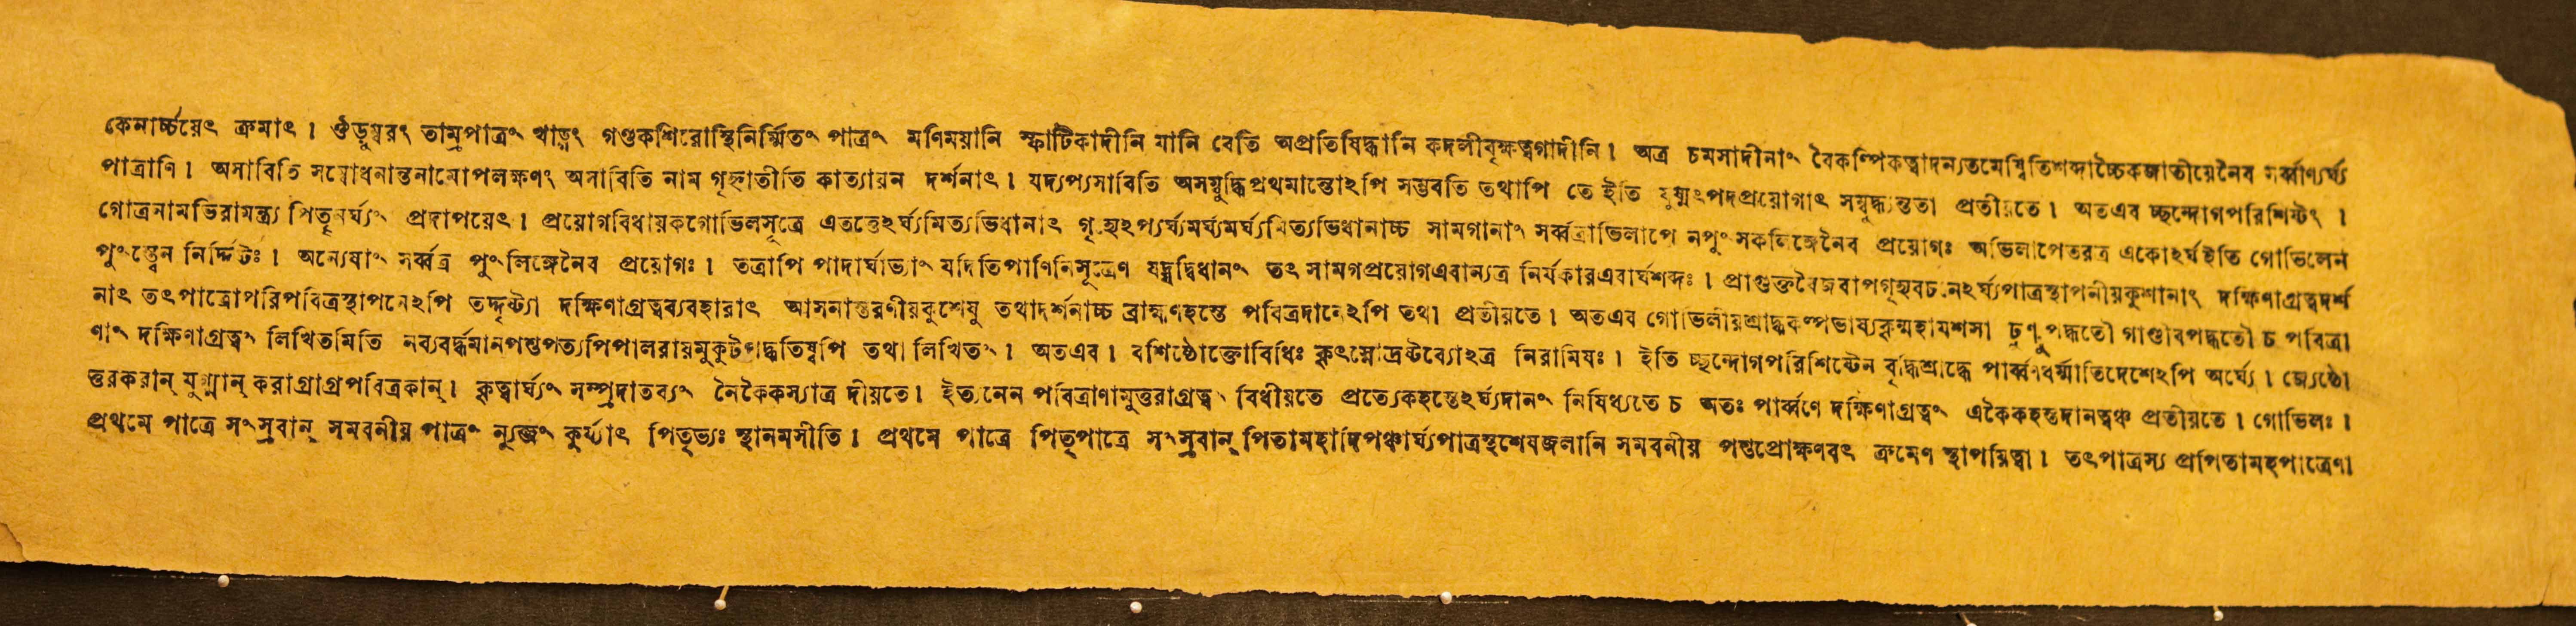 কেনার্চ্চয়েৎ ক্রমাৎ । ঔড়ুম্বরং তাম্রপাত্রং খাড়্গং গণ্ডকশিরোস্থিনির্ম্মিতং পাত্রং মণিময়ানি স্ফাটিকাদীনি যানি বেতি অপ্রতিষিদ্ধানি কদলীবৃক্ষত্বগাদীনি । অত্র চমসাদীনাং বৈকল্পিকত্বাদন্যতমেষ্বিতিশব্দাচ্চৈকজাতীয়েনৈব সর্ব্বাণ্যর্ঘ্য
পাত্রাণি । অসাবিতি সম্বোধনান্তনামোপলক্ষণং অসাবিতি নাম গৃহ্নাতীতি কাত্যায়ন দর্শনাৎ । যদ্যপ্যসাবিতি অসম্বুদ্ধিপ্রথমান্তোঽপি সম্ভবতি তথাপি তে ইতি যুষ্মৎপদপ্রয়োগাৎ সম্বুদ্ধ্যন্ততা প্রতীয়তে । অতএব চ্ছন্দোগপরিশিষ্টং ।
গোত্রনামভিরামন্ত্র্য পিতৃনর্ঘ্যং প্রদাপয়েৎ । প্রয়োগবিধায়কগোভিলসূত্রে এতত্তেঽর্ঘ্যমিত্যভিধানাৎ গৃহ্যেঽপ্যর্ঘ্যমর্ঘ্যমর্ঘ্যমিত্যভিধানাচ্চ সামগানাং সর্ব্বত্রাভিলাপে নপুংসকলিঙ্গেনৈব প্রয়োগঃ অভিলাপেতরত্র একোঽর্ঘইতি গোভিলেন
পুংস্ত্বেন নির্দ্দিষ্টঃ । অন্যেষাং সর্ব্বত্র পুংলিঙ্গেনৈব প্রয়োগঃ । তত্রাপি পাদার্ঘাভ্যাং যদিতিপাণিনিসূত্রেণ যদ্বিধানং তৎ সামগপ্রয়োগএবান্যত্র নির্যকারএবার্ঘশব্দঃ । প্রাগুক্তবৈজবাপগৃহ্যবচনেঽর্ঘ্যপাত্রস্থাপনীয়কুশানাং দক্ষিণাগ্রত্বদর্শ
নাৎ তৎপাত্রোপরিপবিত্রস্থাপনেঽপি তদ্দৃষ্ট্যা দক্ষিণাগ্রত্বব্যবহারাৎ আসনাস্তরণীয়কুশেষু তথাদর্শনাচ্চ ব্রাহ্মণহস্তে পবিত্রদানেঽপি তথা প্রতীয়তে । অতএব গোভিলীয়শ্রাদ্ধকল্পভাষ্যকৃন্মহাযশসা পদ্ধতৌ চ পবিত্রা
ণাং দক্ষিণাগ্রত্বং লিখিতমিতি নব্যবর্দ্ধমানপশুপত্যপিপালরায়মুকুটপদ্ধতিষ্বপি তথা লিখিতং । অতএব । বশিষ্ঠোক্তোবিধিঃ কৃৎস্নোদ্রষ্টব্যোঽত্র নিরামিষঃ । ইতি চ্ছন্দোগপরিশিষ্টেন বৃদ্ধিশ্রাদ্ধে পার্ব্বণধর্ম্মাতিদেশেঽপি অর্ঘ্যে । জ্যেষ্ঠো
ত্তরকরান্ যুগ্মান্ করাগ্রাগ্রপবিত্রকান্ । কৃত্বার্ঘ্যং সম্প্রদাতব্যং নৈকৈকস্যাত্র দীয়তে । ইত্যনেন পবিত্রাণামুত্তরাগ্রত্বং বিধীয়তে প্রত্যেকহস্তেঽর্ঘ্যদানং নিষিধ্যতে চ অতঃ পার্ব্বণে দক্ষিণাগ্রত্বং একৈকহস্তদানত্বঞ্চ প্রতীয়তে । গোভিলঃ ।
প্রথমে পাত্রে সংস্রবান্ সমবনীয় পাত্রং ন্যুব্জং কুর্য্যাৎ পিতৃভ্যঃ স্থানমসীতি । প্রথমে পাত্রে পিতৃপাত্রে সংস্রবান্ পিতামহাদিপঞ্চার্ঘ্যপাত্রস্থশেষজলানি সমবনীয় পশুপ্রোক্ষণবৎ ক্রমেণ স্থাপয়িত্বা । তৎপাত্রস্য প্রপিতামহপাত্রেণা